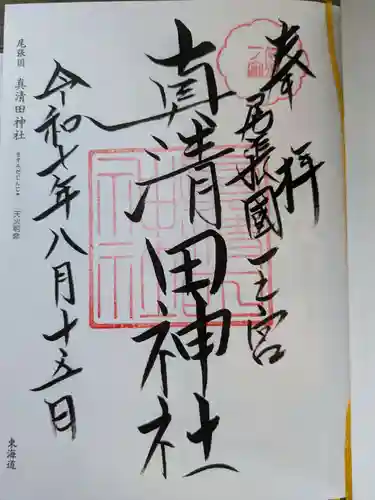 奉拝
尾張國一之宮
真清田神社
令和七年八月十五日
尾張国 真清田神社
ますみだじんじゃ
天火明命
東海道